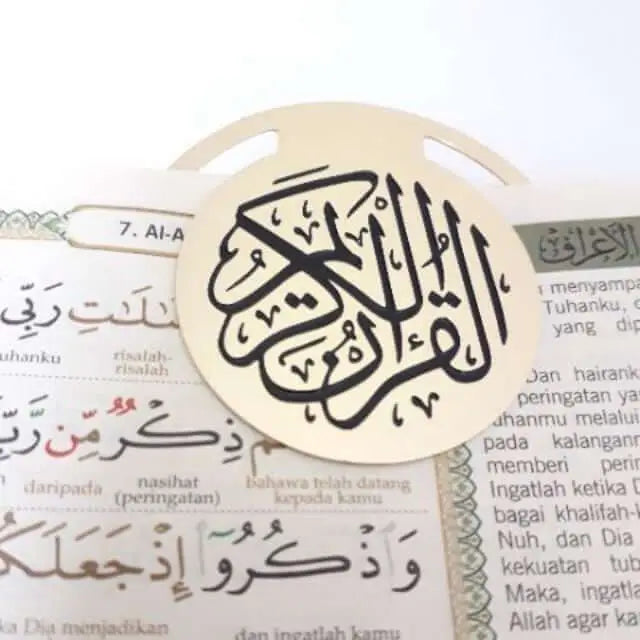 القرآن الكريم
7. Al-A
رَبِّي
uhanku risalah-
risalah
ذِكْرٌ مِّن رَّبِّ
daripada nasihat bahawa telah datang
(peringatan) kepada kamu
وَاذْكُرُوٓا إِذْ جَعَلَكُ
ka Dia menjadikan dan ingatlah kamu
الأعراف
menyampa
Tuhanku, d
yang dip
Dan hairank
peringatan ya
uhanmu melalu
pada kalangann
memberi perin
Ingatlah ketika D
bagai khalifah-
Nuh, dan Dia
kekuatan tub
Maka, ingatla
Allah agar ka